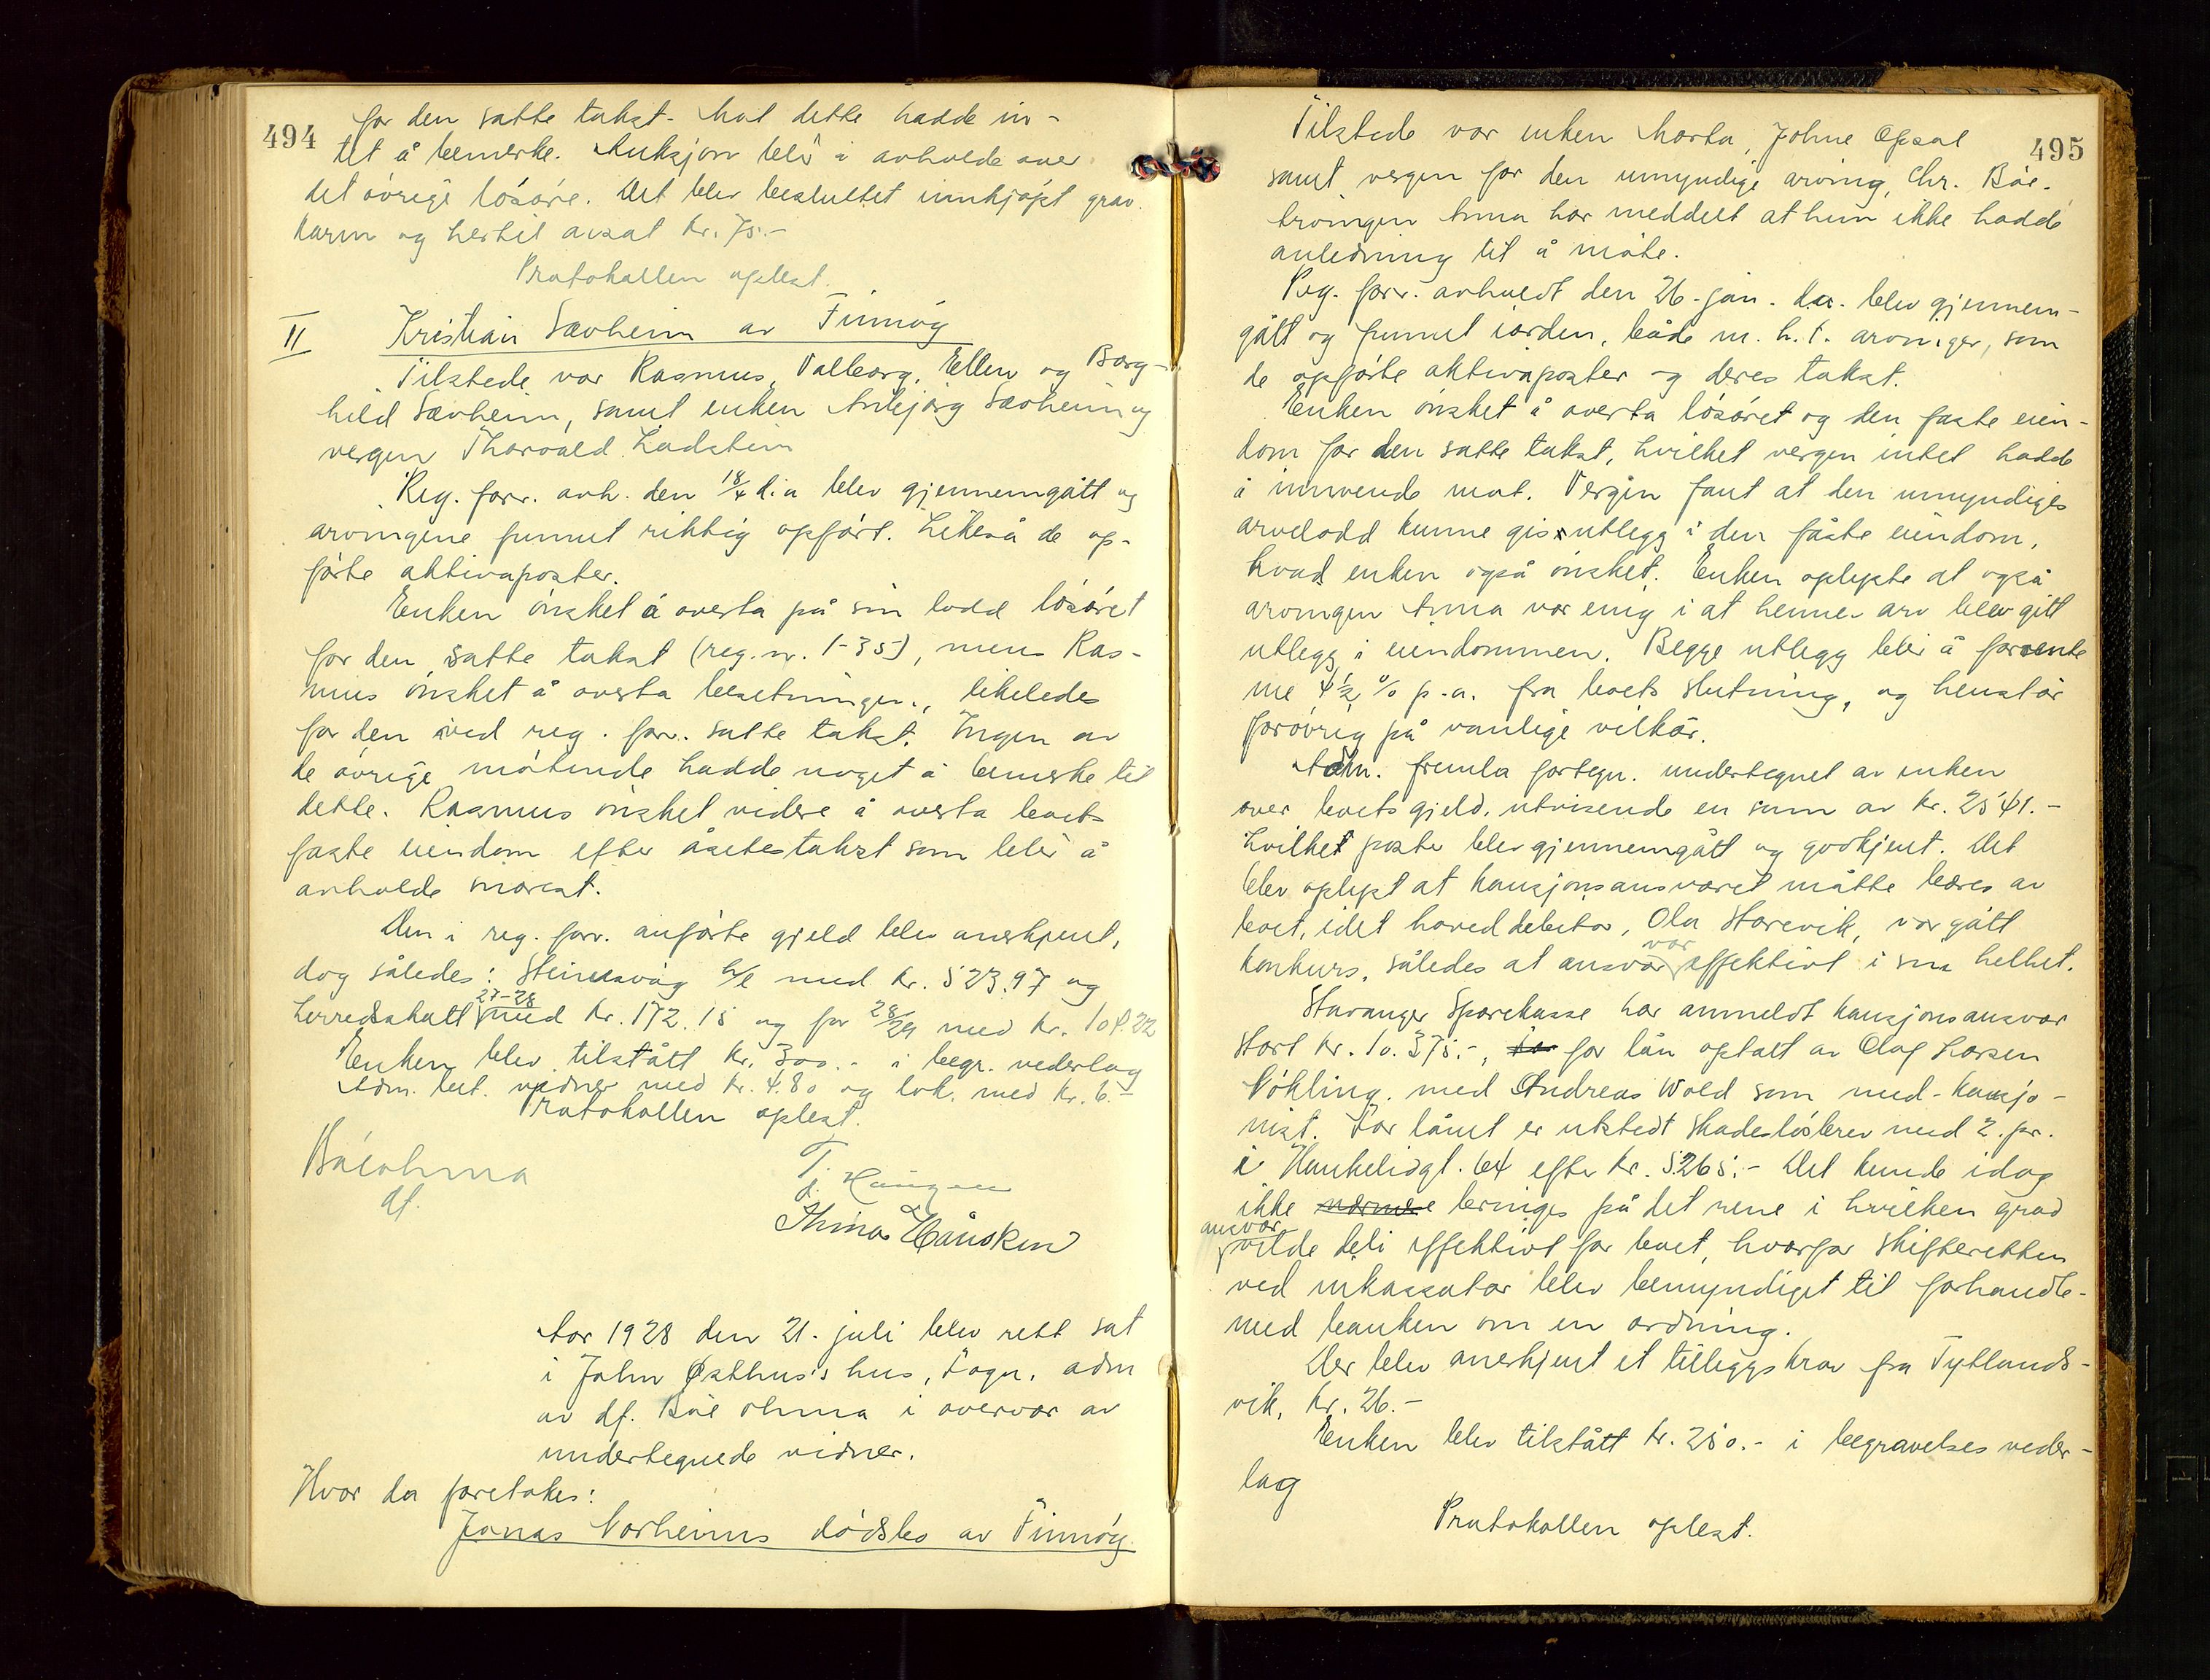 494
for den satte takst. Mot dette hadde in-
tet å bemerke. Auksjon blir å avholde over
det øvrige løsøre. Det blev besluttet innkjøpt grav-
karm og hertil avsat kr. 75.-
Protokollen oplest.
II Kristian Sævheim av Finnøy
Tilstede var Rasmus, Valborg, Ellen og Borg-
hild Sævheim, samt enken Anbjørg Sævheim og
vergen Thorvald Ladstein
Reg. forr. avh. den 18/4 d.a blev gjennemgått og
arvingene funnet riktig opført. Likeså de op-
førte aktivaposter.
Enken ønsket å overta på sin lodd løsøret
for den satte takst (reg. nr. 1-35), mens Ras-
mus ønsket å overta besetningen, likeledes
for den ved reg. forr. satte takst. Ingen av
de øvrige møtende hadde noget å bemerke til
dette. Rasmus ønsket videre å overta boets
faste eiendom efter åsetestakst som blir å
avholde snarest.
Den i reg. forr. anførte gjeld blev anerkjent,
dog således: Steinsvåg h/l med kr. 523.97 og
herredsskatt 27-28 med kr. 172.15 og for 28/29 med kr. 108.22
Enken blev tilstått kr. 300.- i begr. vederlag
Adm. bet. vidner med kr. 4.80 og lok. med kr. 6.-
Protokollen oplest.
Bøe ohma
df.
T. d. Haugen
Thina Håusken
Aar 1928 den 21. juli blev rett sat
i John Østhus's hus, Fogn, adm
av df. Bøe ohma i overvær av
undertegnede vidner.
Hvor da foretokes:
Jonas Norheims dødsbo av Finnøy
495
Tilstede var enken Marta, Johne Opsal
samt vergen for den umyndige arving, Chr. Bøe.
Arvingen Anna har meddelt at hun ikke hadde
anledning til å møte.
Reg. forr. avholdt den 26. jan. d.a. blev gjennem-
gått og funnet iorden, både m. h. t. arvinger, som
de opførte aktivaposter og deres takst.
Enken ønsket å overta løsøret og den faste eien-
dom for den satte takst, hvilket vergen intet hadde
å innvende mot. Vergen fant at den umyndiges
arvelodd kunne gis utlegg i den faste eiendom,
hvad enken også ønsket. Enken oplyste at også
arvingen Anna var enig i at hennes arv blev gitt
utlegg i eiendommen. Begge utlegg blir å forrente
me 4 1/2 % p.a. fra boets slutning, og henstår
forøvrig på vanlige vilkår.
Adm. fremla fortegn. undertegnet av enken
over boets gjeld, utvisende en sum av kr. 2541.-
Hvilket poster blev gjennemgått og godkjent. Det
blev oplyst at kausjonsansvaret måtte bæres av
boet, idet hoveddebitor, Ola Storevik, var gått
konkurs, således at ansvar var effektivt i sin helhet.
Stavanger Sparekasse har anmeldt kausjonsansvar
stort kr. 10.375.-, for lån optatt av Olaf Larsen
Nøkling, med Andreas Wold som med-kausjo-
nist. For lånet er utstedt skadesløsbrev med 2. pr.
i Haukelidgt. 64 efter kr. 5265.- Det kunde idag
ikke nærmere bringes på det rene i hvilken grad
ansvar vilde bli effektivt for boet, hvorfor skifteretten
ved inkassator blev bemyndiget til forhandle-
med banken om en ordning.
Der blev anerkjent et tilleggskrav fra Tytlands-
vik, kr. 26.-
Enken blev tilstått kr. 250.- i begravelses veder-
lag
Protokollen oplest.